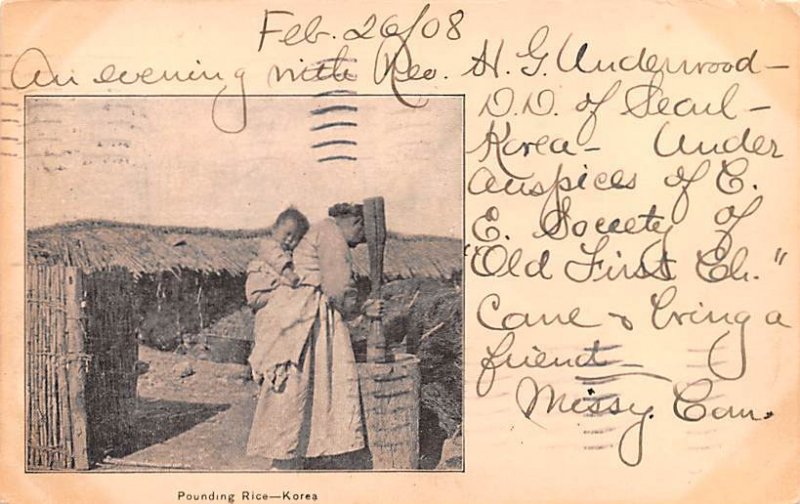 Feb. 26/08
An evening with Rev. H. G. Underwood—
D.D. of Seoul—
Korea— Under
Auspices of C.
E. Society of
"Old First Ch."
Come & bring a
friend—
Missy. Com.
Pounding Rice—Korea